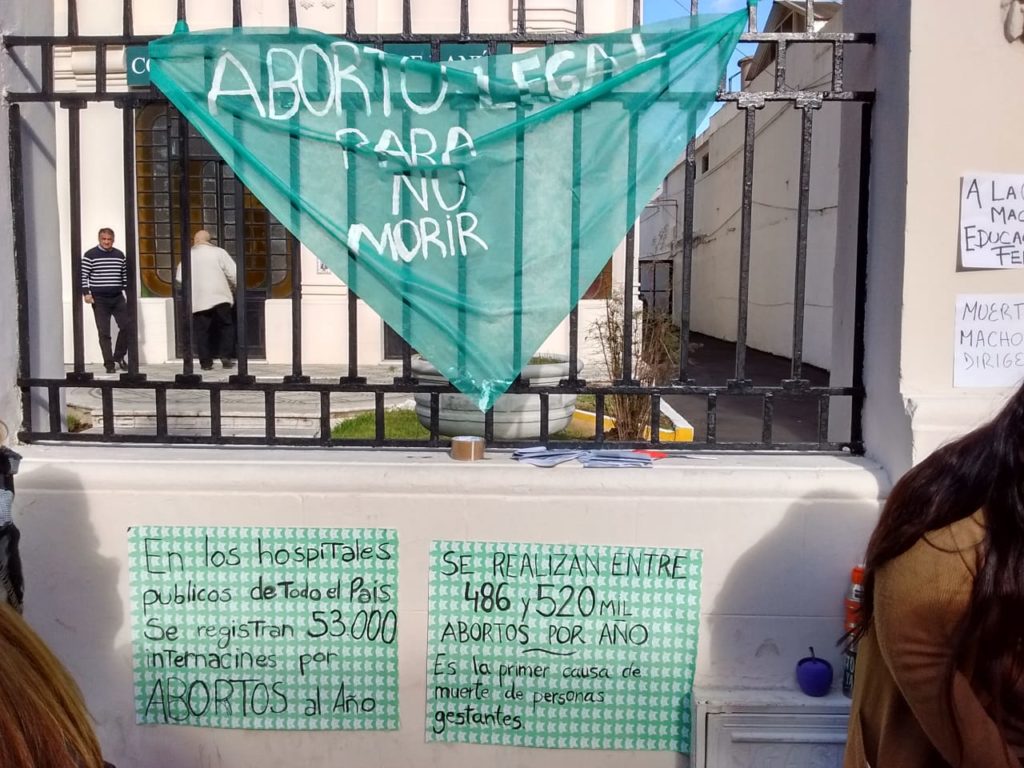 ABORTO LEGAL
PARA
NO
MORIR
En los hospitales
publicos de Todo el Pais
Se registran 53.000
internacines por
ABORTOS al Año
SE REALIZAN ENTRE
486 y 520 MIL
ABORTOS POR AÑO
Es la primer causa de
muerte de personas
gestantes.
A LA
MAC
EDUCA
FE
MUERT
MACHO
DIRIGE